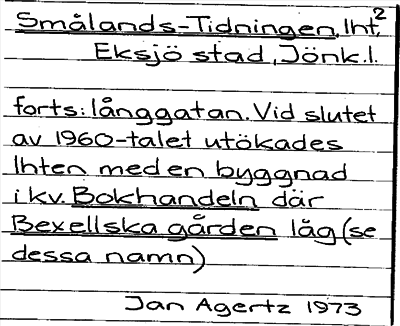 Smålands-Tidningen, Iht, 2
Eksjö stad, Jönk.l.
forts: långgatan. Vid slutet
av 1960-talet utökades
Ihten med en byggnad
i kv. Bokhandeln där
Bexellska gården låg (se
dessa namn)
Jan Agertz 1973